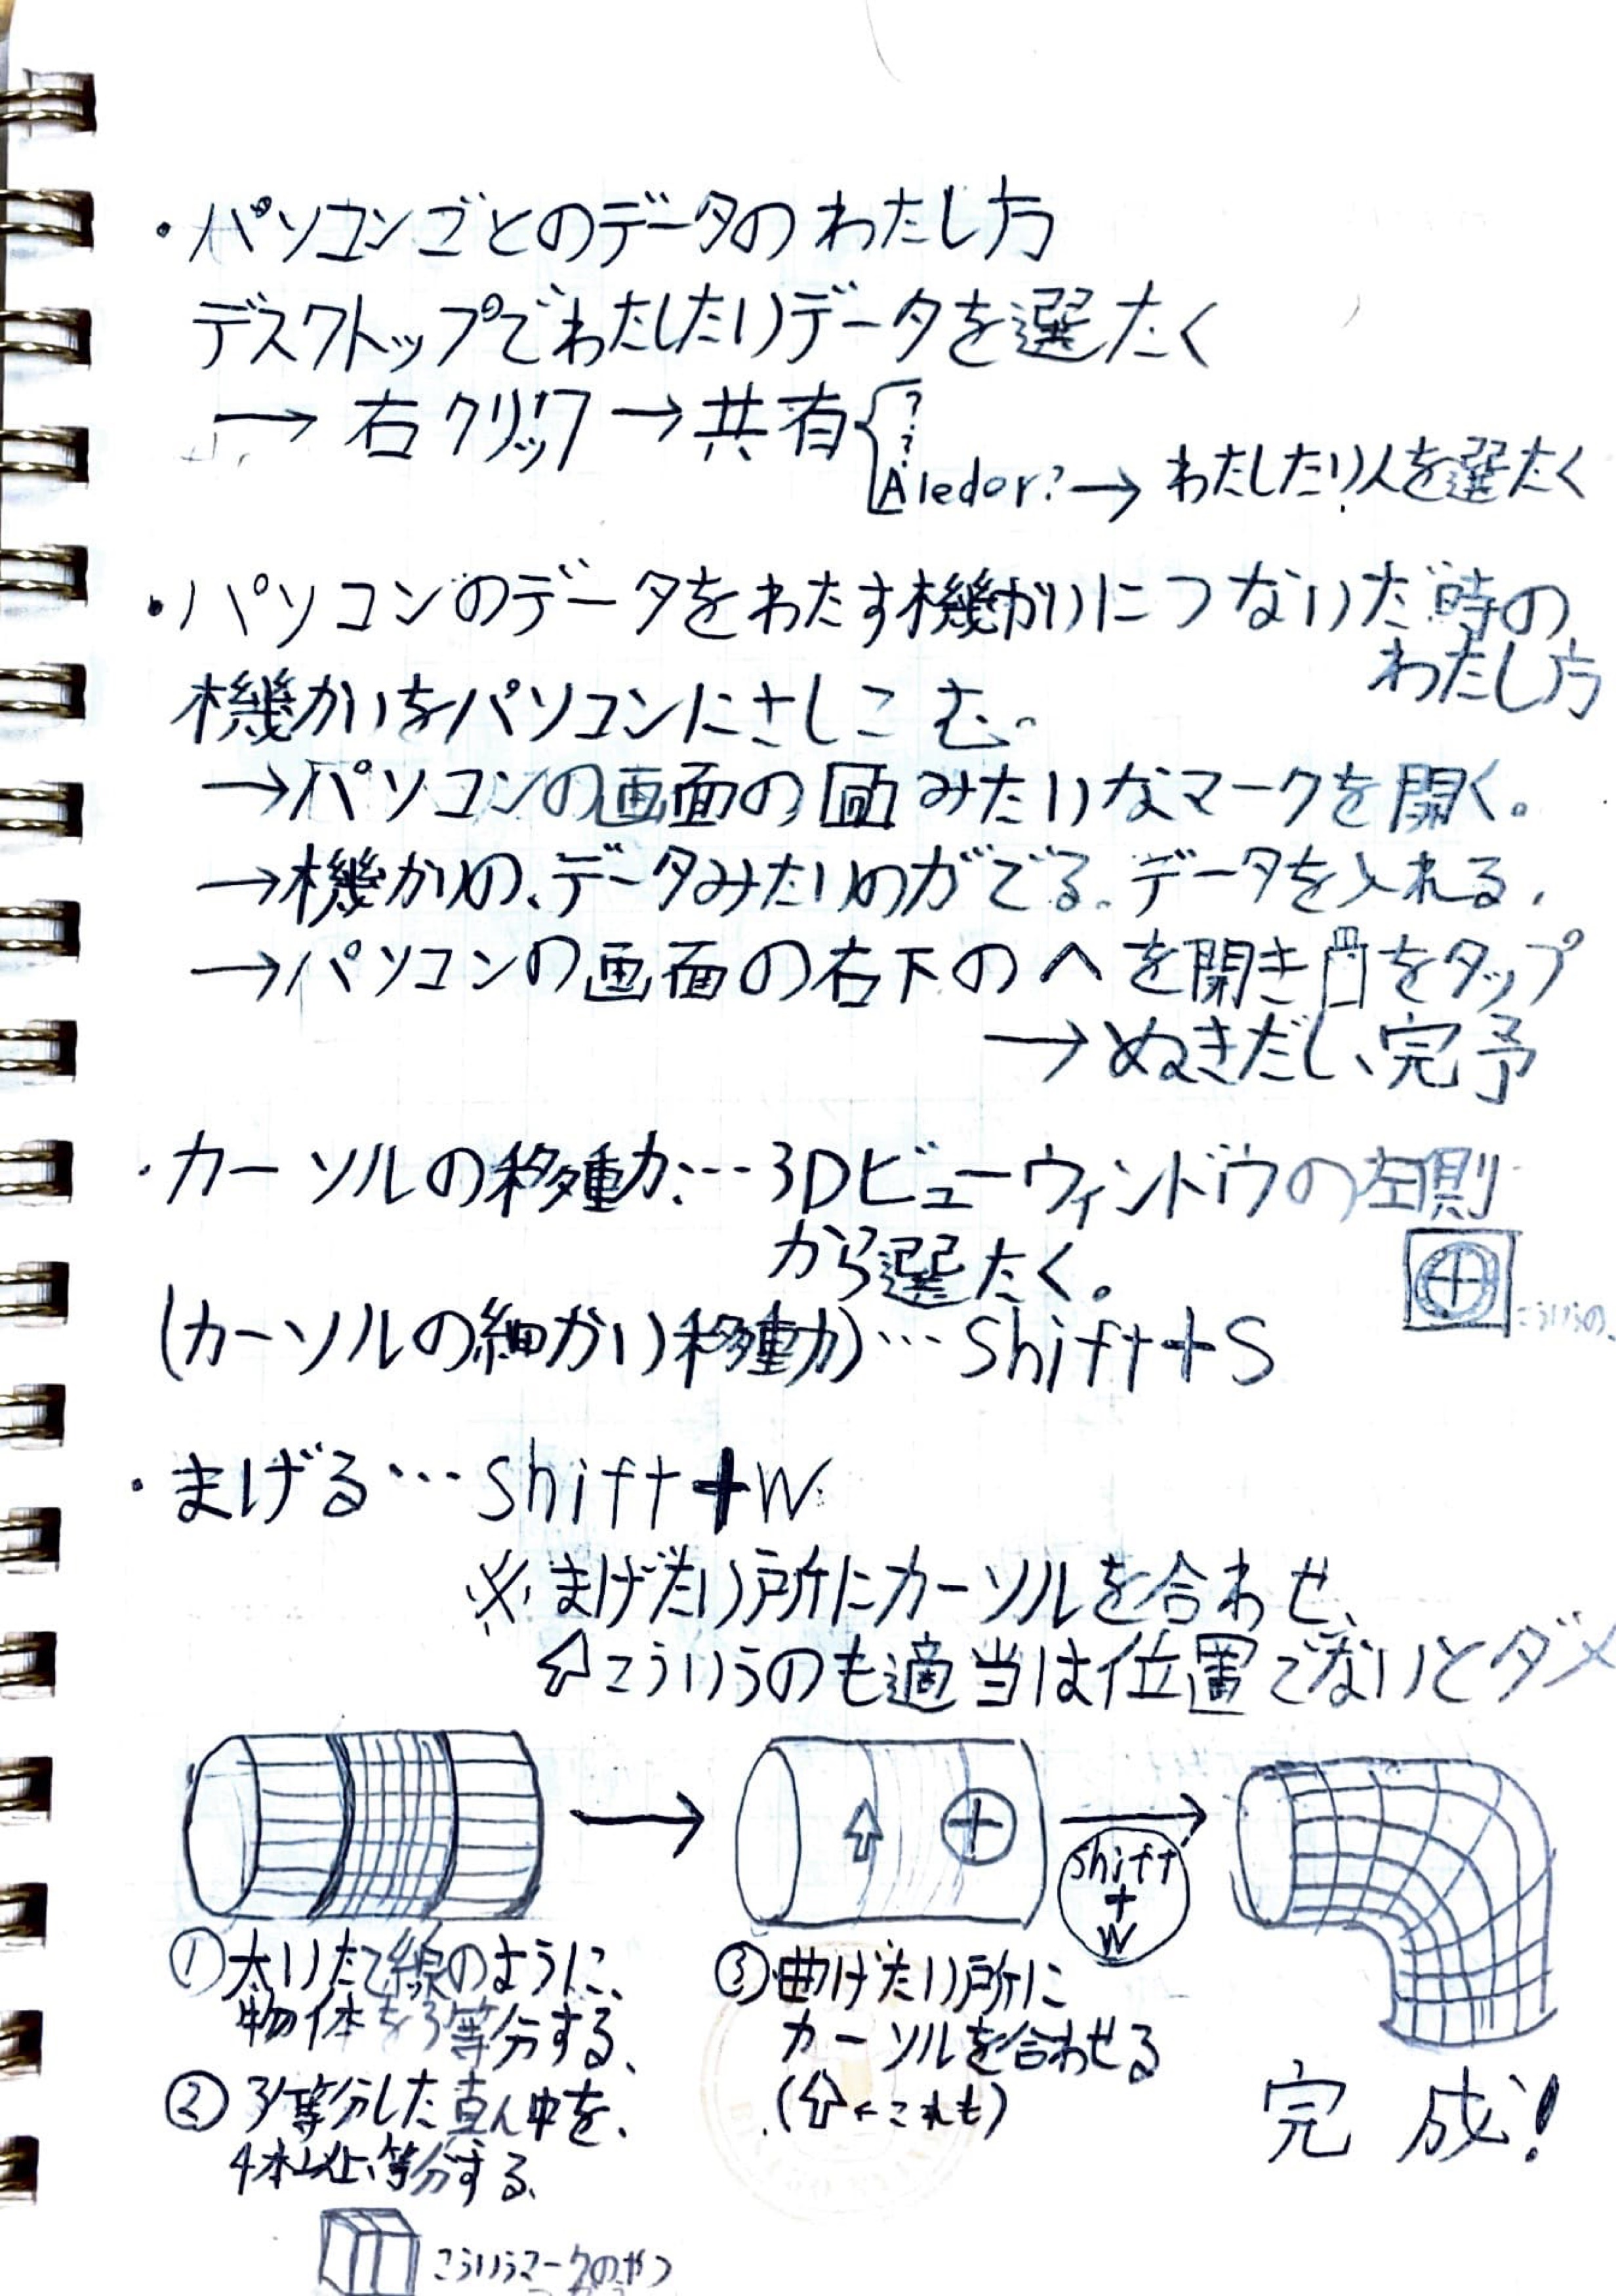 ・パソコンごとのデータのわたし方
デスクトップでわたしたいデータを選たく
→右クリック→共有{?
?
Aledor?→わたしたい人を選たく
・パソコンのデータをわたす機かいにつないだ時の
わたし方
機かいをパソコンにさしこむ。
→パソコンの画面の みたいなマークを開く。
→機かいの、データみたいのがでる。データを入れる。
→パソコンの画面の右下のへを開き をタップ
→ぬきだし、完予
・カーソルの移動…3Dビューウィンドウの左側
から選たく。
こういうの。
(カーソルの細かい移動)…Shift+S
・まげる…Shift+W
※まげたい所にカーソルを合わせ、
⇧こういうのも適当は位置でないとダメ
shift
+
W
①太いたて線のように、
物体を3等分する、
②3等分した真ん中を、
4本以上、等分する、
③曲げたい所に
カーソルを合わせる
(⇧←これも)
完成!
こういうマークのやつ